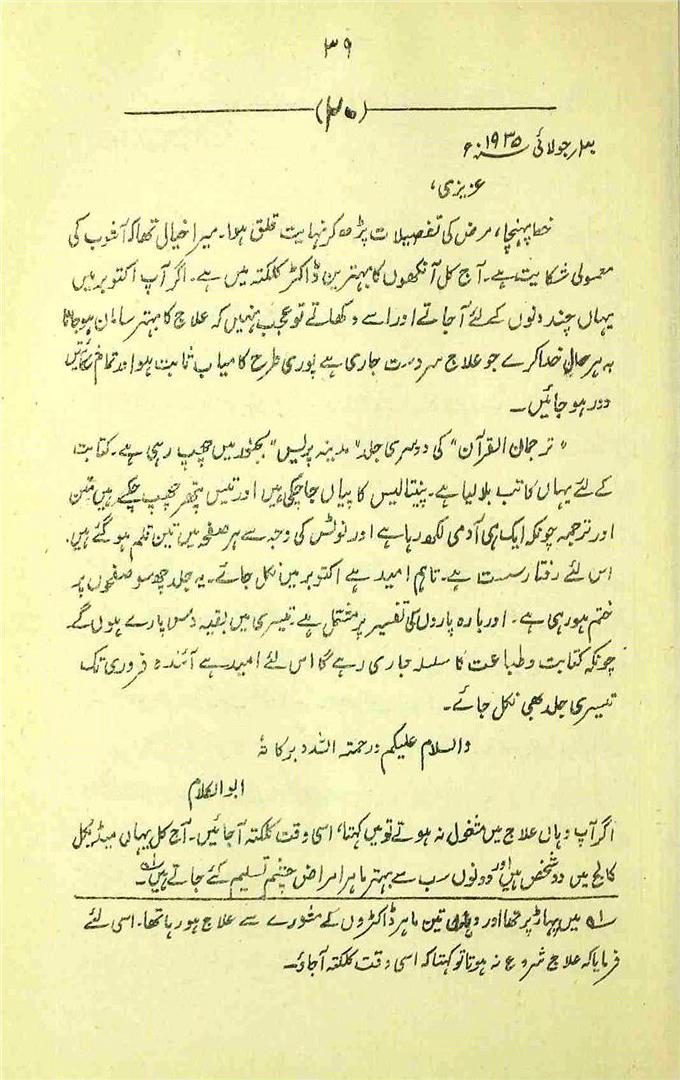 ۳۹
(۲۰)
۳؍ جولائی ۱۹۳۵ء
عزیزی،
خط پہنچا، مرض کی تفصیلات پڑھ کر نہایت قلق ہوا۔ میرا خیال تھا کہ آشوب کی
معمولی شکایت ہے۔ آج کل آنکھوں کا بہترین ڈاکٹر کلکتہ میں ہے۔ اگر آپ اکتوبر میں
یہاں چند دنوں کے لئے آجاتے اور اسے دکھاتے تو عجب نہیں کہ علاج کا بہتر سامان ہو جاتا
بہ ہر حال خدا کرے جو علاج سردست جاری ہے پوری طرح کامیاب ثابت ہو اور تمام شکایتیں
دور ہو جائیں۔
"ترجمان القرآن" کی دوسری جلد "مدینہ پریس" بجنور میں چھپ رہی ہے۔ کتابت
کے لئے یہاں کاتب بلا لیا ہے۔ پنتالیس کاپیاں جا چکی ہیں اور تیس پتھر چھپ چکے ہیں متن
اور ترجمہ چونکہ ایک ہی آدمی لکھ رہا ہے اور نوٹس کی وجہ سے ہر صفحہ میں تین قلم ہو گئے ہیں۔
اس لئے رفتار سست ہے۔ تاہم امید ہے اکتوبر میں نکل جائے۔ یہ جلد چھ سو صفحوں پر
ختم ہو رہی ہے۔ اور بارہ پاروں کی تفسیر پر مشتمل ہے۔ تیسری میں بقیہ دس پارے ہوں گے
چونکہ کتابت و طباعت کا سلسلہ جاری رہے گا اس لئے امید ہے آئندہ فروری تک
تیسری جلد بھی نکل جائے۔
والسلام علیکم و رحمتہ اللہ و برکاتہ
ابوالکلام
اگر آپ وہاں علاج میں مشغول نہ ہوتے تو میں کہتا، اسی وقت کلکتہ آجائیں۔ آج کل یہاں میڈیکل
کالج میں دو شخص ہیں اور دونوں سب سے بہتر ماہر امراض چشم تسلیم کئے جاتے ہیں ۱؎۔
۱؎ میں پہاڑ پر تھا اور وہاں تین ماہر ڈاکٹروں کے مشورے سے علاج ہو رہا تھا۔ اسی لئے
فرمایا کہ علاج شروع نہ ہوتا تو کہتا کہ اسی وقت کلکتہ آجاؤ۔